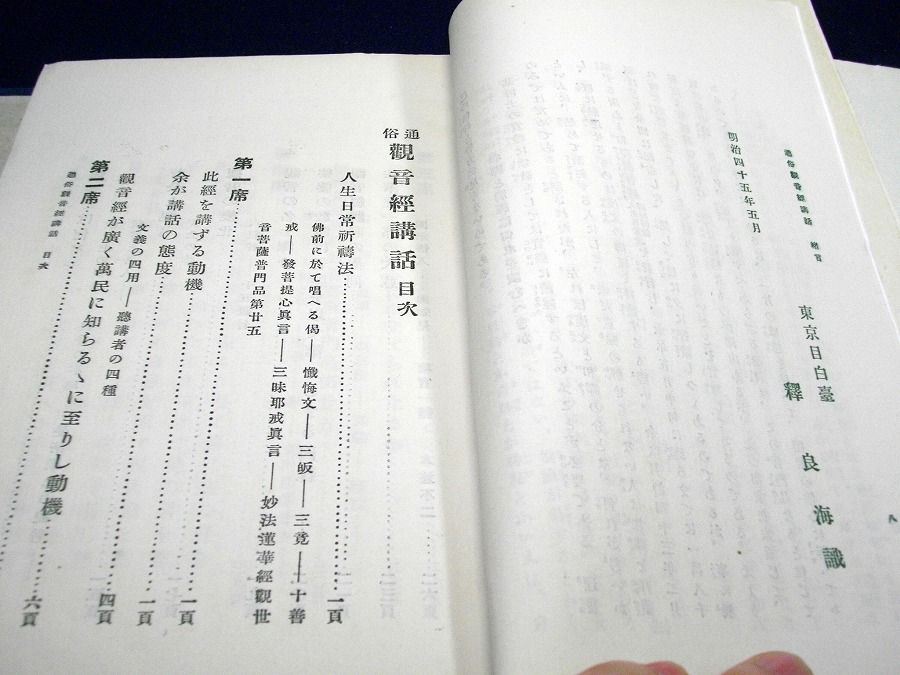 通俗觀音經講話 緒言
八
明治四十五年五月
東京目白臺
釋良海識
通俗
觀音經講話目次
人生日常祈禱法…………一頁
佛前に於て唱へる偈――懺悔文――三皈――三竟――十善
戒――發菩提心眞言――三昧耶戒眞言――妙法蓮華經觀世
音菩薩普門品第廿五
第一席…………一頁
此經を講ずる動機…………一頁
余が講話の態度…………四頁
文義の四用――聽講者の四種
第二席
觀音經が廣く萬民に知らるゝに至りし動機…………六頁
通俗觀音經講話 目次